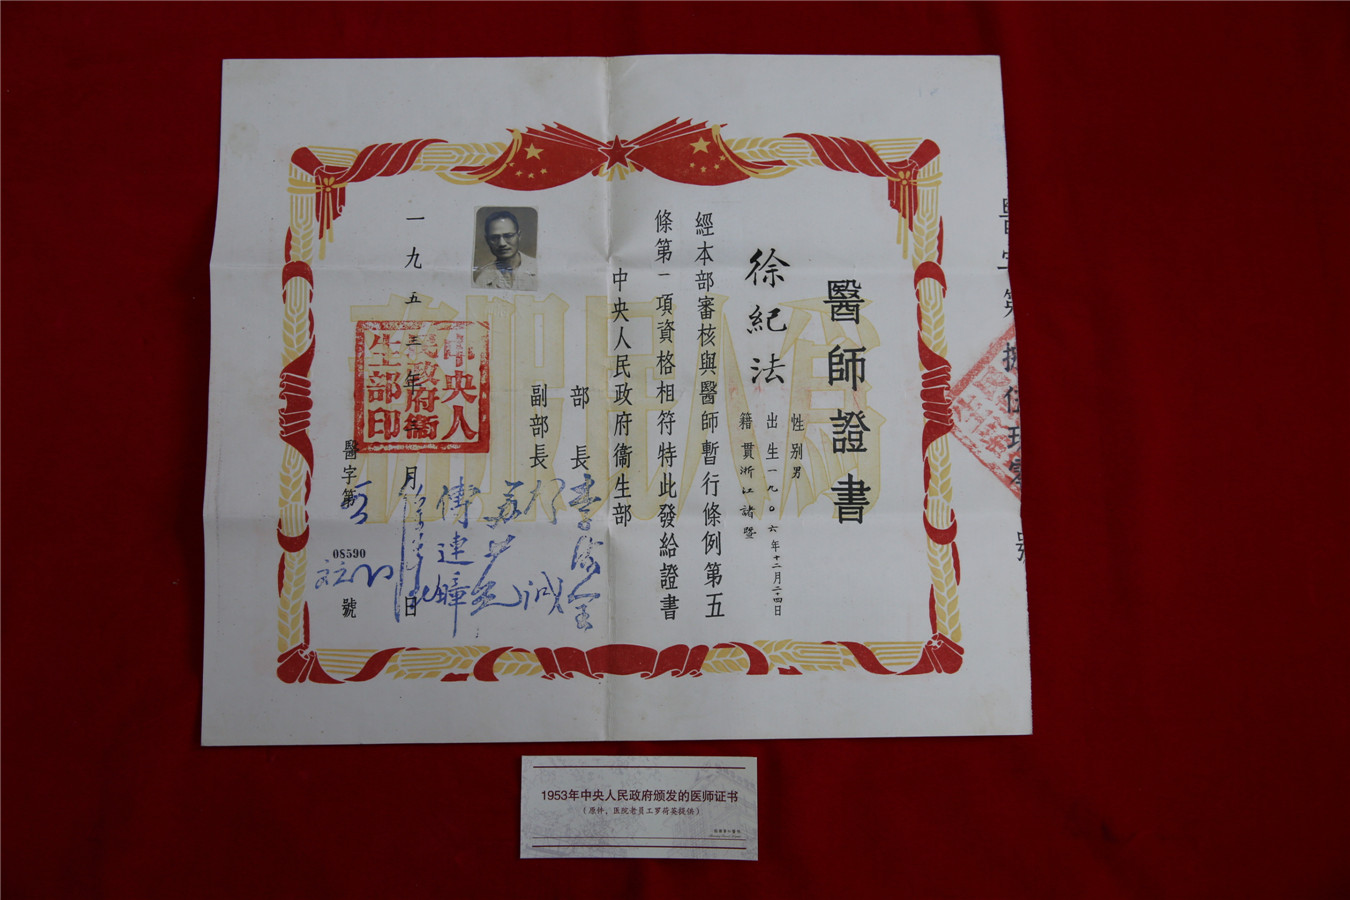 醫師證書
徐紀法
性別男
出生一九〇六年十二月二十四日
籍貫浙江諸暨
經本部審核與醫師暫行條例第五
條第一項資格相符特此發給證書
中央人民政府衞生部
部長 李德全
副部長
傅連暲
一九五三年三月 日
中央人
民政府衞
生部印
醫字第
08590
號
為人民服務
1953年中央人民政府颁发的医师证书
（原件，医院老员工罗荷英提供）